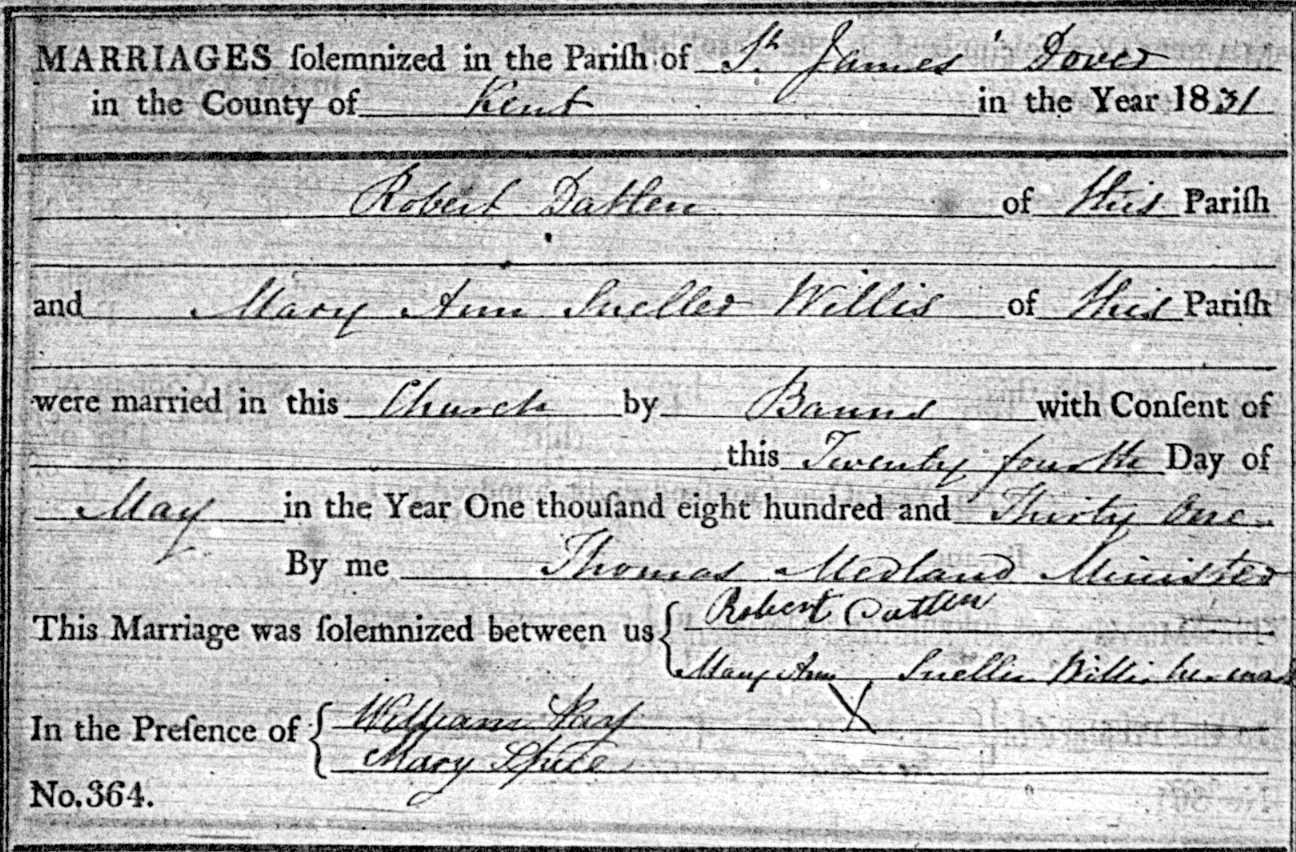 MARRIAGES ſolemnized in the Pariſh of St. James' Dover
in the County of Kent in the Year 1831
Robert Datlen of this Pariſh
and Mary Ann Sneller Willis of this Pariſh
were married in this Church by Banns with Conſent of
this Twenty fourth Day of
May in the Year One thouſand eight hundred and Thirty One
By me Thomas Medland Minister
Robert Datlen
This Marriage was ſolemnized between us
Mary Ann Sneller Willis her mark
X
William
In the Preſence of
Mary
No. 364.